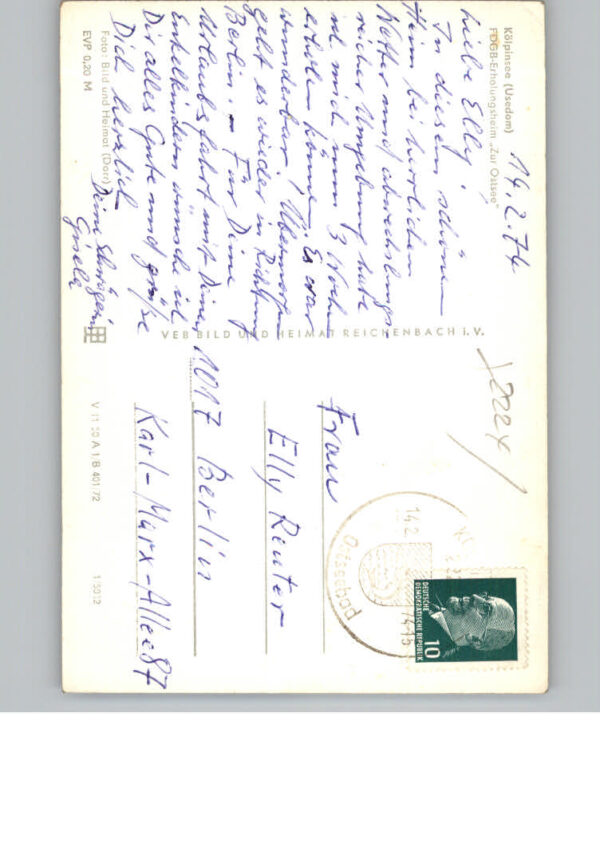 Kölpinsee (Usedom)
FDGB-Erholungsheim „Zur Ostsee"
14.2.74
Liebe Elly!
In diesem schönen
Heim bei herrlichem
Wetter und abwechslungs-
reicher Umgebung habe
ich mich nun 3 Woch.
erholen können. Es war
wunderbar! Übermorgen
geht es wieder in Richtung
Berlin. – Für Deine
Urlaubsfahrt mit Deinen
Enkelkindern wünsche ich
Dir alles Gute und grüße
Dich herzlich
Deine Schwägerin
Gisela
Foto: Bild und Heimat (Dorr)
EVP 0,20 M
VEB BILD UND HEIMAT REICHENBACH i. V.
Frau
Elly Reuter
1017 Berlin
Karl-Marx-Allee 87
V 11 50 A 1/B 401/72
1/5012
14.2.74-15
Ostseebad
DEUTSCHE
DEMOKRATISCHE REPUBLIK
10